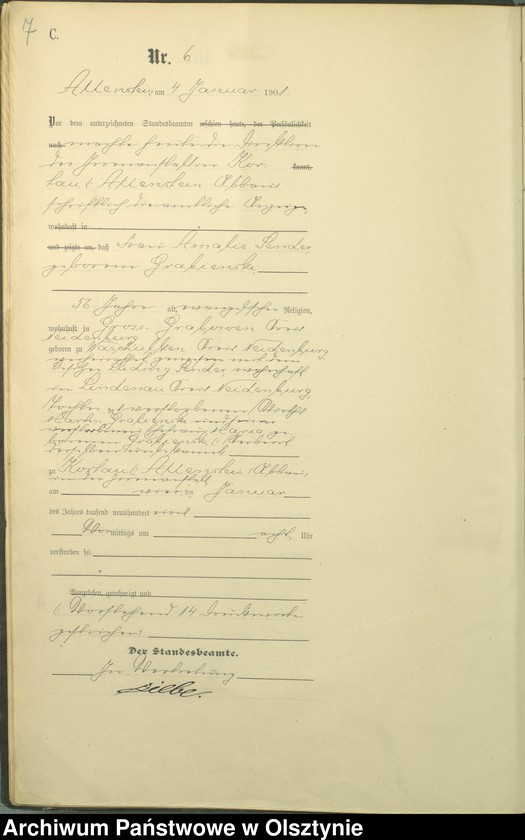 7
C.
Nr. 6
Allenstein, am 4 Januar 1901.
Vor dem unterzeichneten Standesbeamten erschien heute, der Persönlichkeit
nach machte heute die Direktion
der Irrenanstalten Kor- kannt,
tau (Allenstein Abbau
schriftlich die amtliche Anzeige,
wohnhaft in
und zeigte an, daß Frau Amalie Sender,
geborene Grabienski,
56 Jahre alt, evangelischer Religion,
wohnhaft in Gross Grabowen Kreis
Neidenburg
geboren zu Kreis Neidenburg,
verheirathet gewesen mit dem
Tischler Ludwig Sender wohnhaft
in Lindenau Kreis Neidenburg,
Tochter verstorbenen
und
verstorbenen ge-
borenen
derselben unbekannt
zu Kortau (Allenstein Abbau)
in der Irrenanstalt
am vierten Januar
des Jahres tausend neunhundert und
Vormittags um acht Uhr
verstorben sei.
Vorgelesen, genehmigt und
(Vorstehend 14 Druckworte
gestrichen.
Der Standesbeamte.
In Vertretung
Archiwum Państwowe w Olsztynie